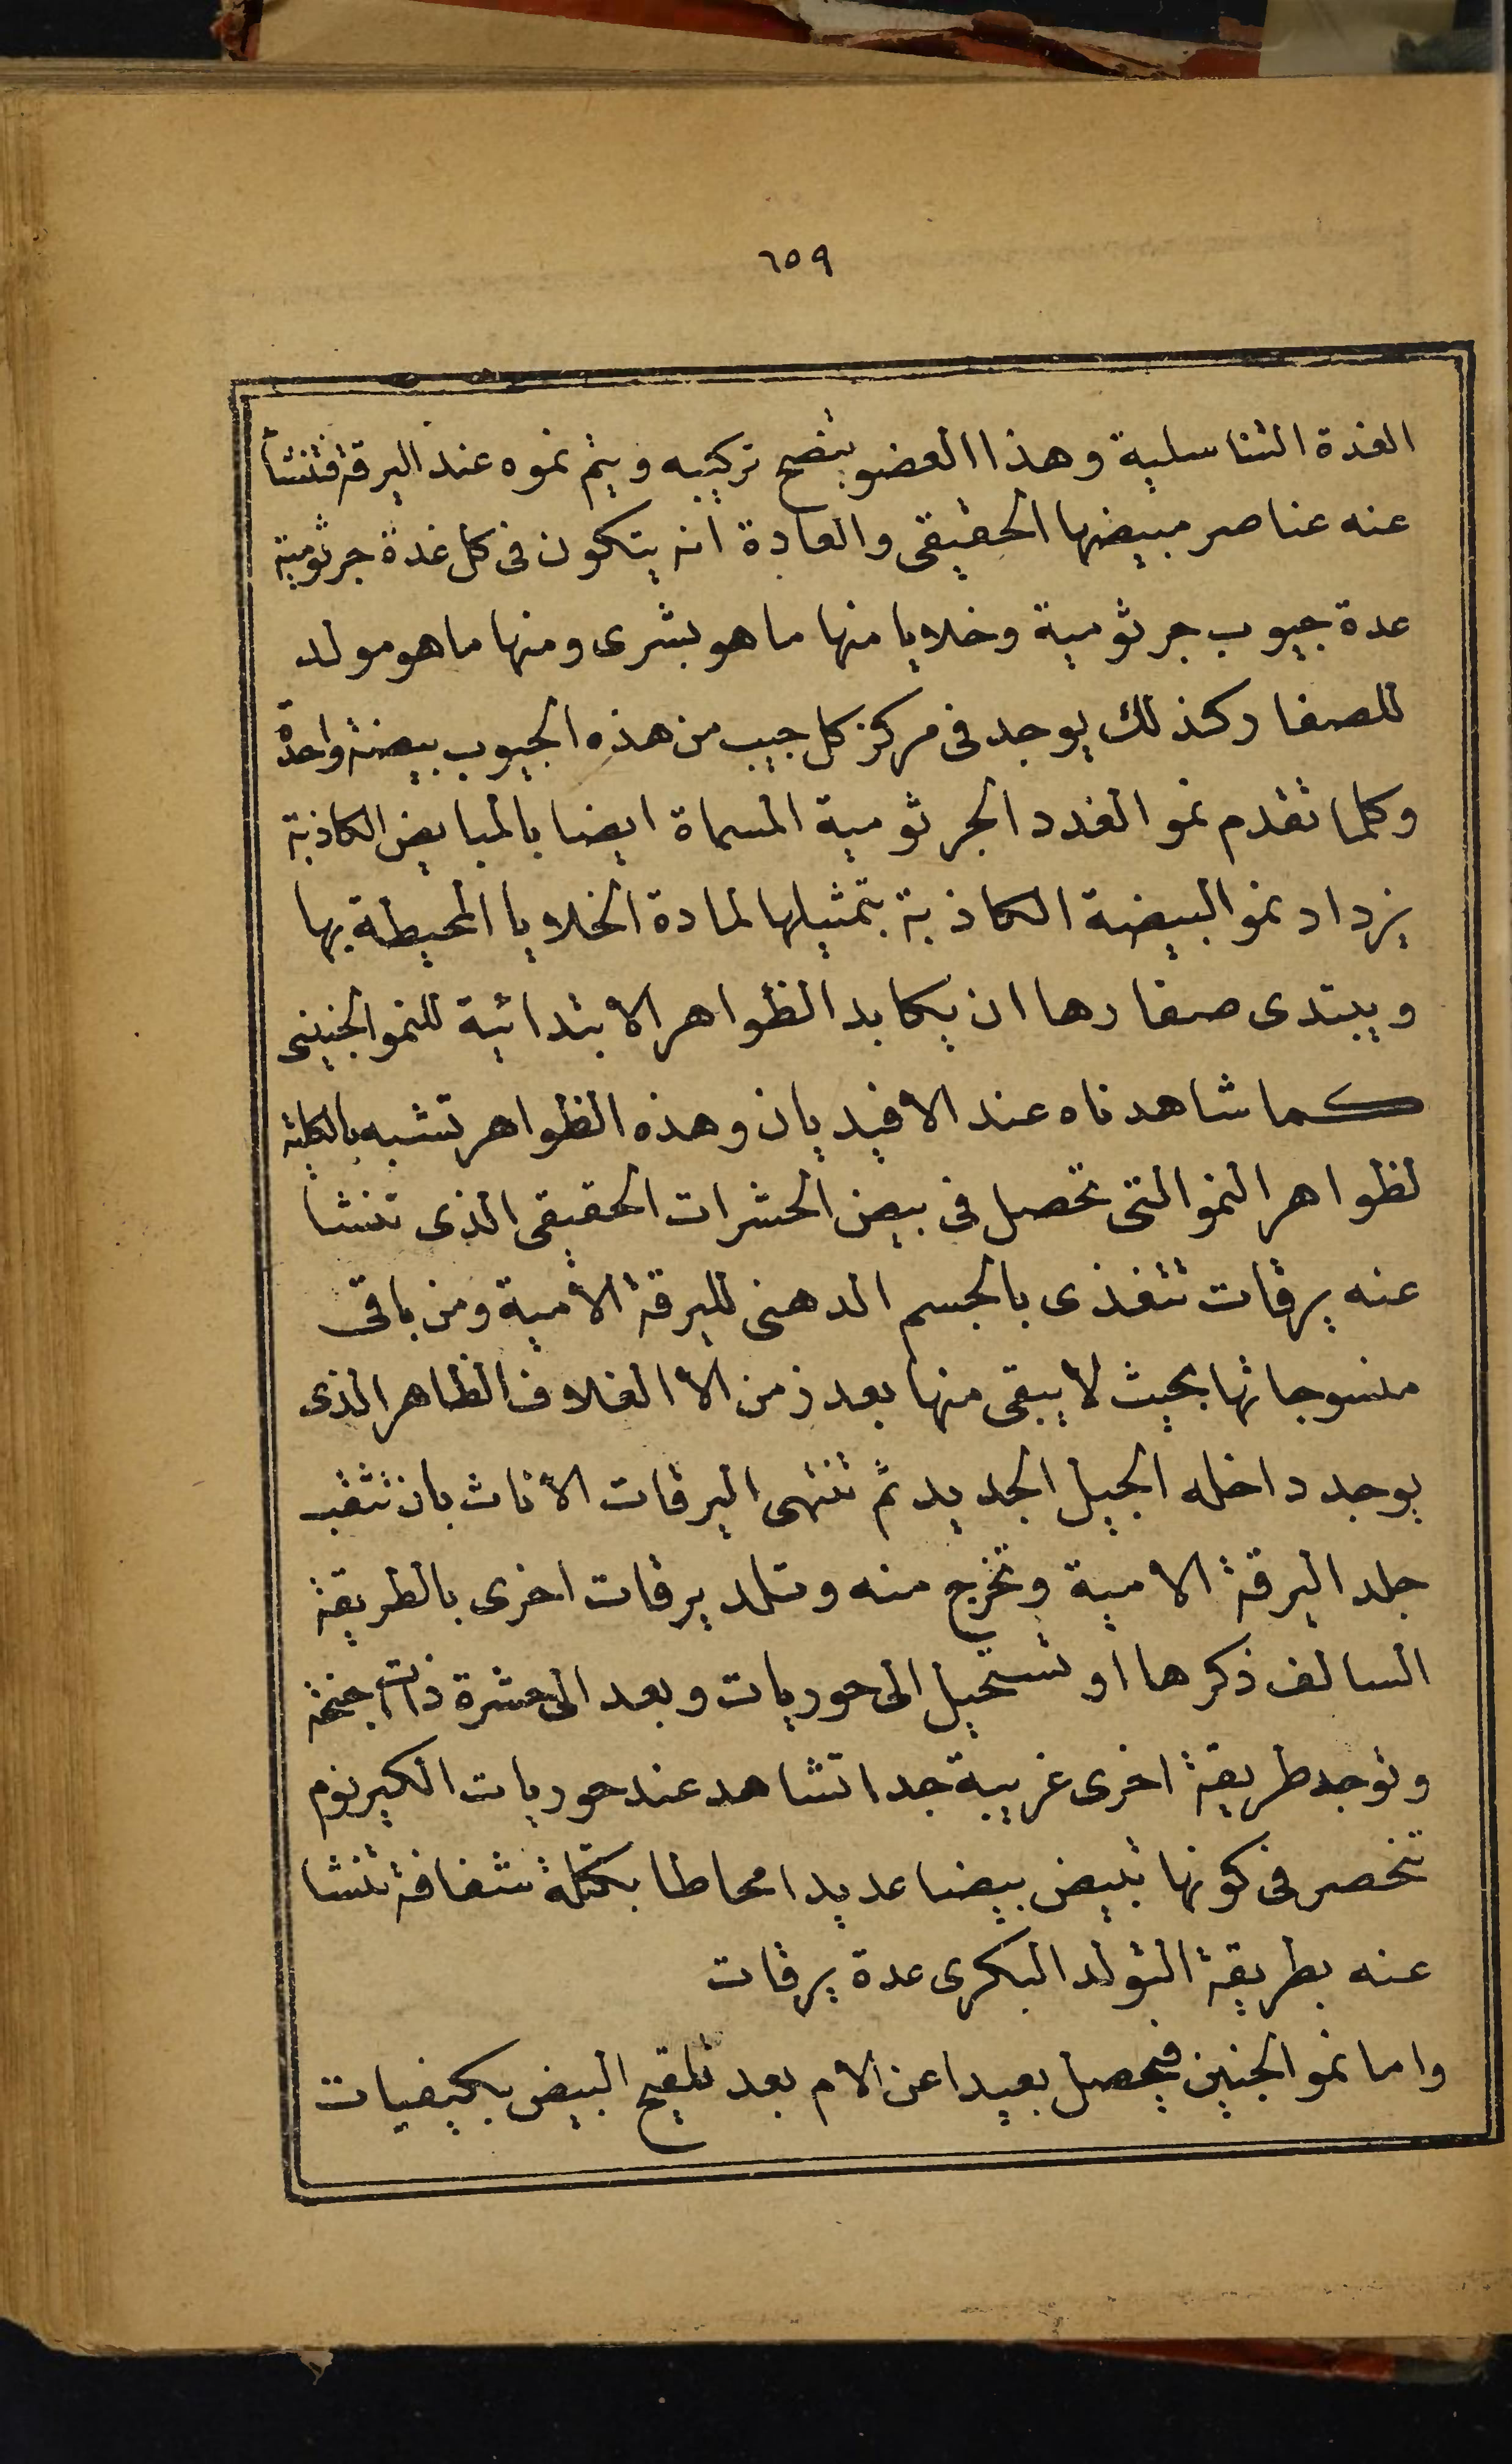 ٦٥٩
الغدة التناسلية وهذا العضو يتضح تركيبه ويتم نموه عند اليرقة فتنشأ
عنه عناصر مبيضها الحقيقى والعادة انه يتكون فى كل غدة جرثومية
عدة جيوب جرثومية وخلايا منها ما هو بشرى ومنها ما هو مولد
للصفار كذلك يوجد فى مركز كل جيب من هذه الجيوب بيضة واحدة
وكلما تقدم نمو الغدد الجرثومية المسماة ايضا بالمبايض الكاذبة
يزداد نمو البيضة الكاذبة بتمثيلها لمادة الخلايا المحيطة بها
ويبتدى صفارها ان يكابد الظواهر الابتدائية للنمو الجنينى
كما شاهدناه عند الافيديان وهذه الظواهر تشبه بالكلية
لظواهر النمو التى تحصل فى بيض الحشرات الحقيقى الذى تنشا
عنه يرقات تتغذى بالجسم الدهنى لليرقة الامية ومن باقى
منسوجاتها بحيث لا يبقى منها بعد زمن الا الغلاف الظاهر الذى
يوجد داخله الجيل الجديد ثم تنتهى اليرقات الاناث بان تثقب
جلد اليرقة الامية وتخرج منه وتلد يرقات اخرى بالطريقة
السالف ذكرها او تستحيل الى حوريات وبعد الى حشرة ذات اجنحة
وتوجد طريقة اخرى غريبة جدا تشاهد عند حوريات الكيرنوم
تنحصر فى كونها تبيض بيضا عديدا محاطا بكتلة شفافة تنشا
عنه بطريقة التولد البكرى عدة يرقات
واما نمو الجنين فيحصل بعيدا عن الام بعد تلقيح البيض بكيفيات